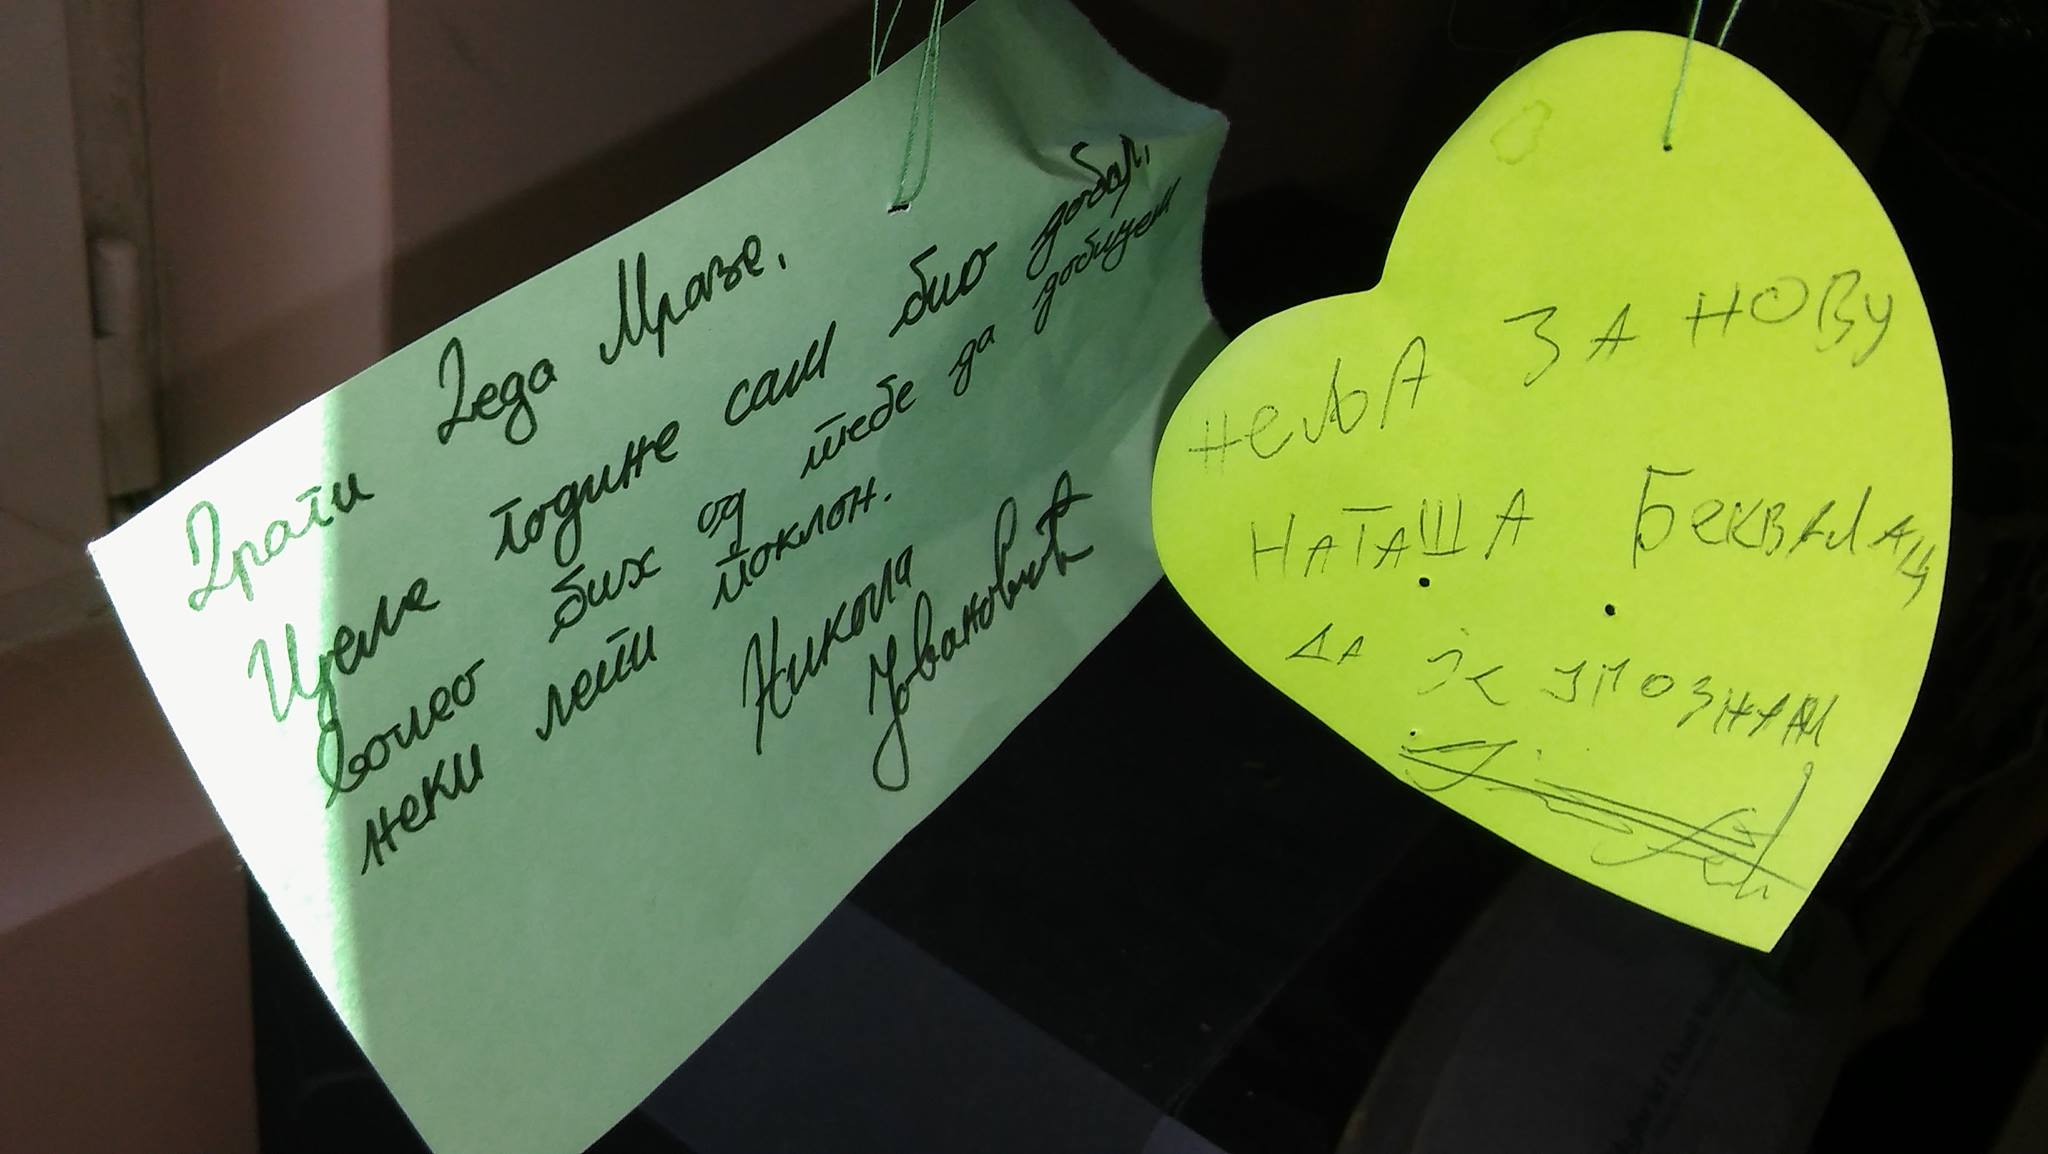 Драги Деда Мразе,
Целе године сам био добар,
волео бих од тебе да добијем
неки лепи поклон.
Никола
Јовановић
НЕЉА ЗА НОВУ
НАТАША БЕКВАЛАЦ
ДА ЈЕ УПОЗНАМ